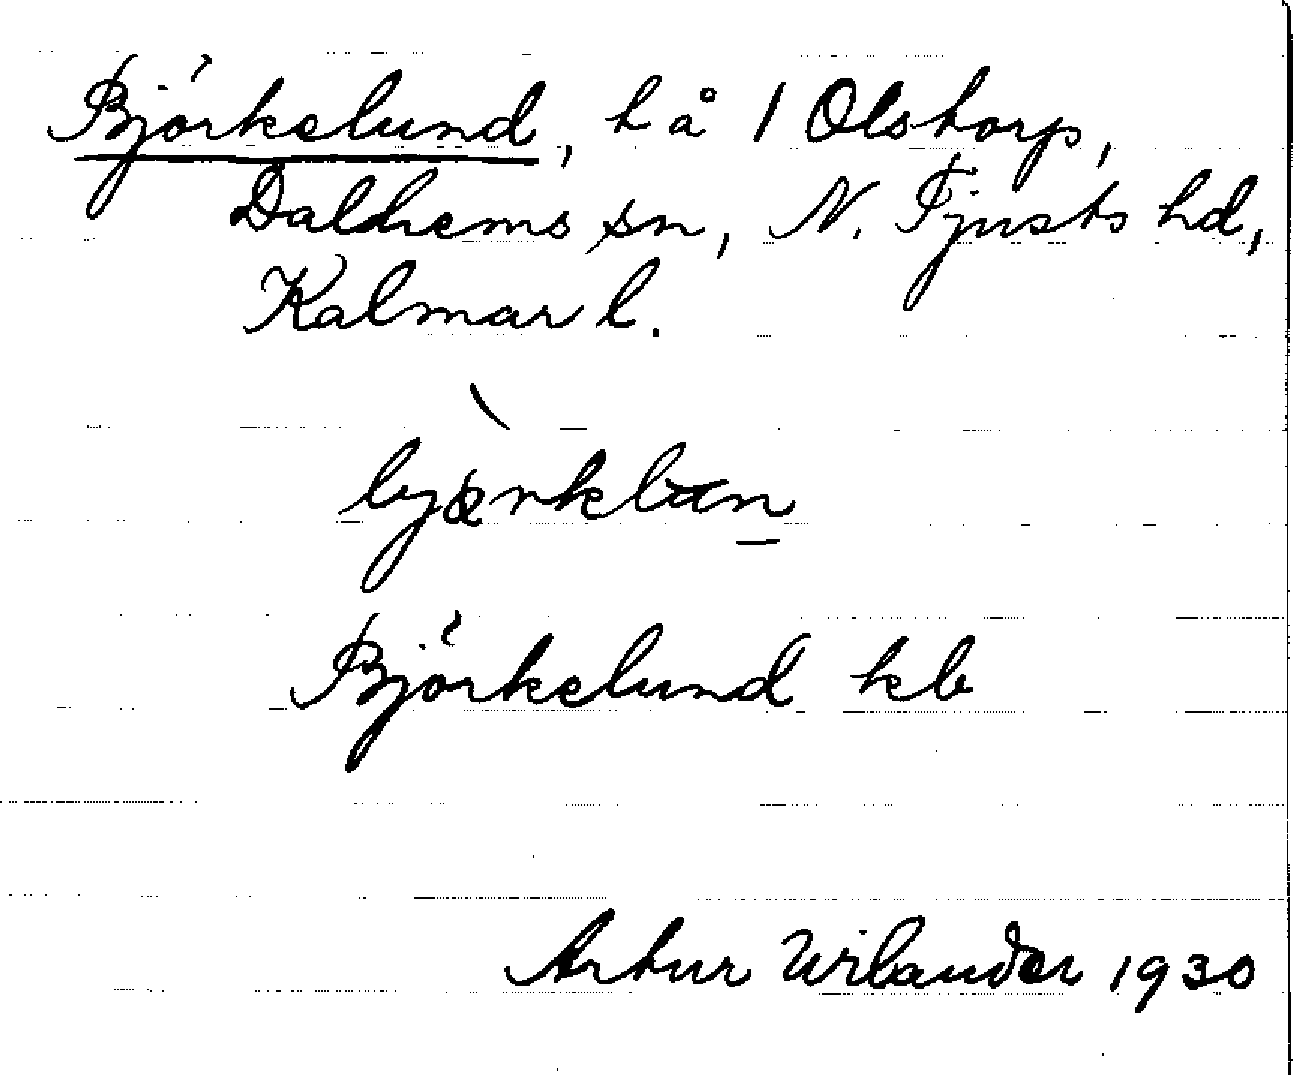 Björkelund, h å 1 Olstorp,
Dalhems sn, N. Tjusts hd,
Kalmar l.
Björkelund kb
Artur Wilander 1930